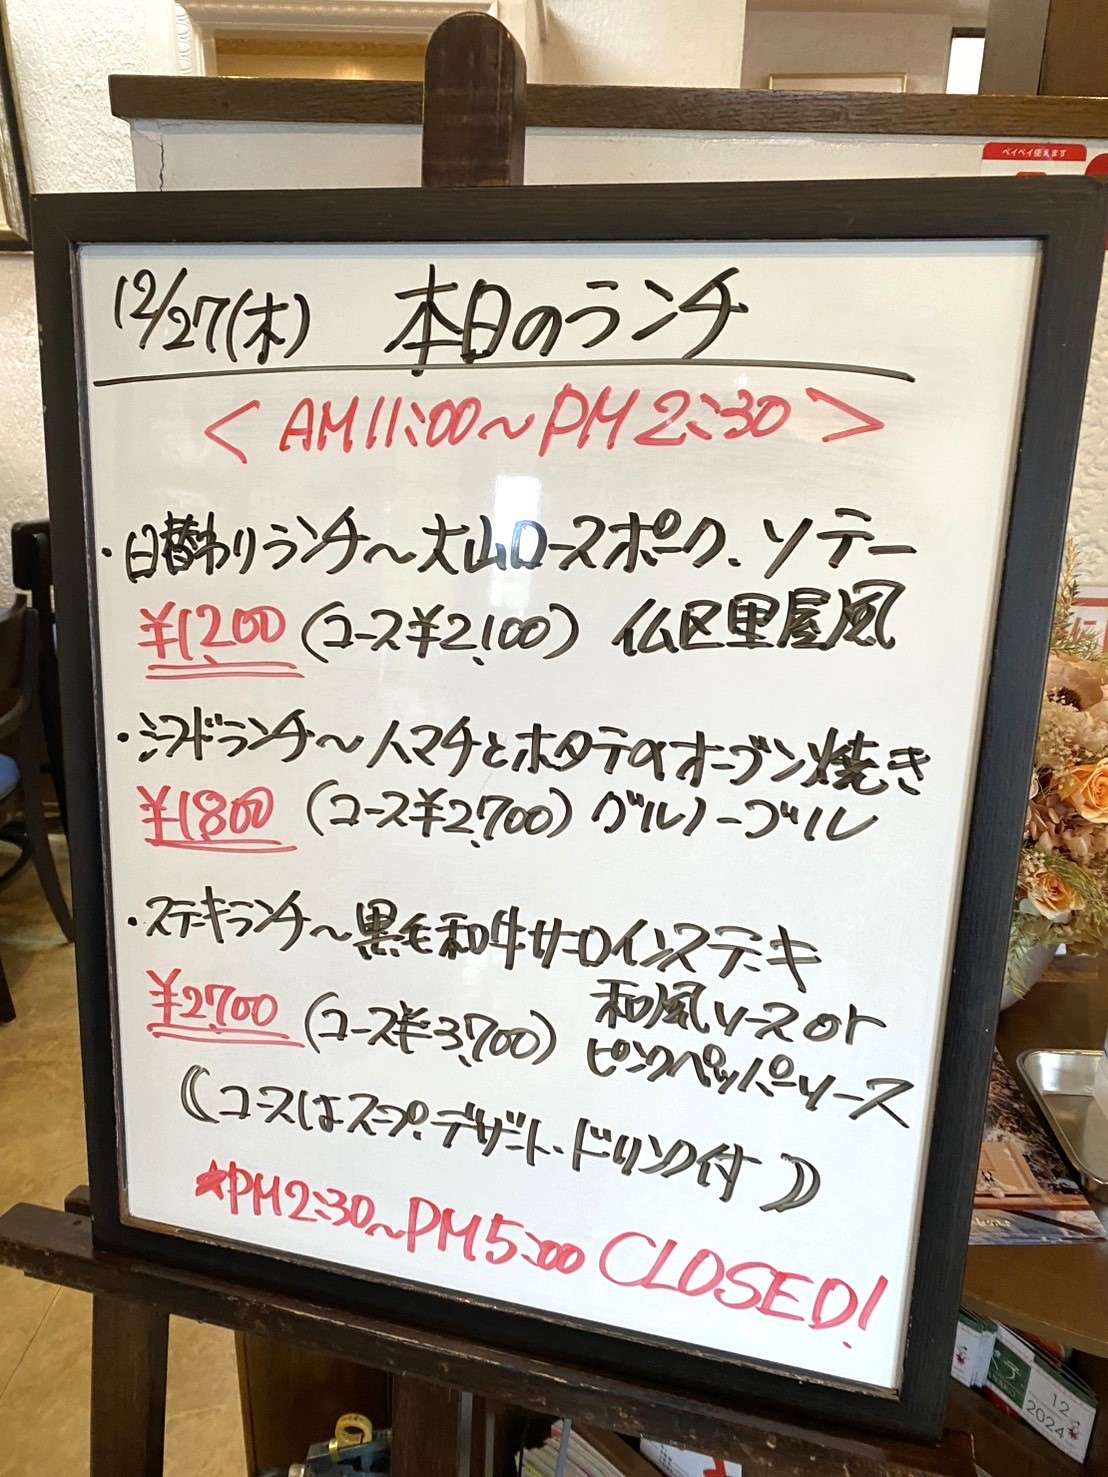 ペイペイ使えます
12/27(木) 本日のランチ
< AM11:00～PM2:30 >
・日替わりランチ～大山ロースポーク、ソテー
¥1,200 (コース¥2,100) 仏区里屋風
・シーフードランチ～ハマチとホタテのオーブン焼き
¥1800 (コース¥2,700) グルノーブル
・ステーキランチ～黒毛和牛サーロインステーキ
¥2,700 (コース¥3,700) 和風ソース or
ピンクペッパーソース
(コースはスープ、デザート、ドリンク付)
★PM2:30～PM5:00 CLOSED!
12
2024